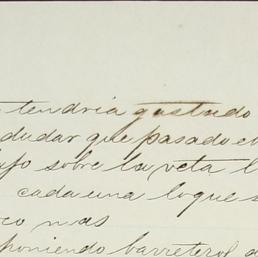 tendria gastado
dudar que pasado e
sobre la veta l
cada una lo que s
co mas
poniendo barreterol a